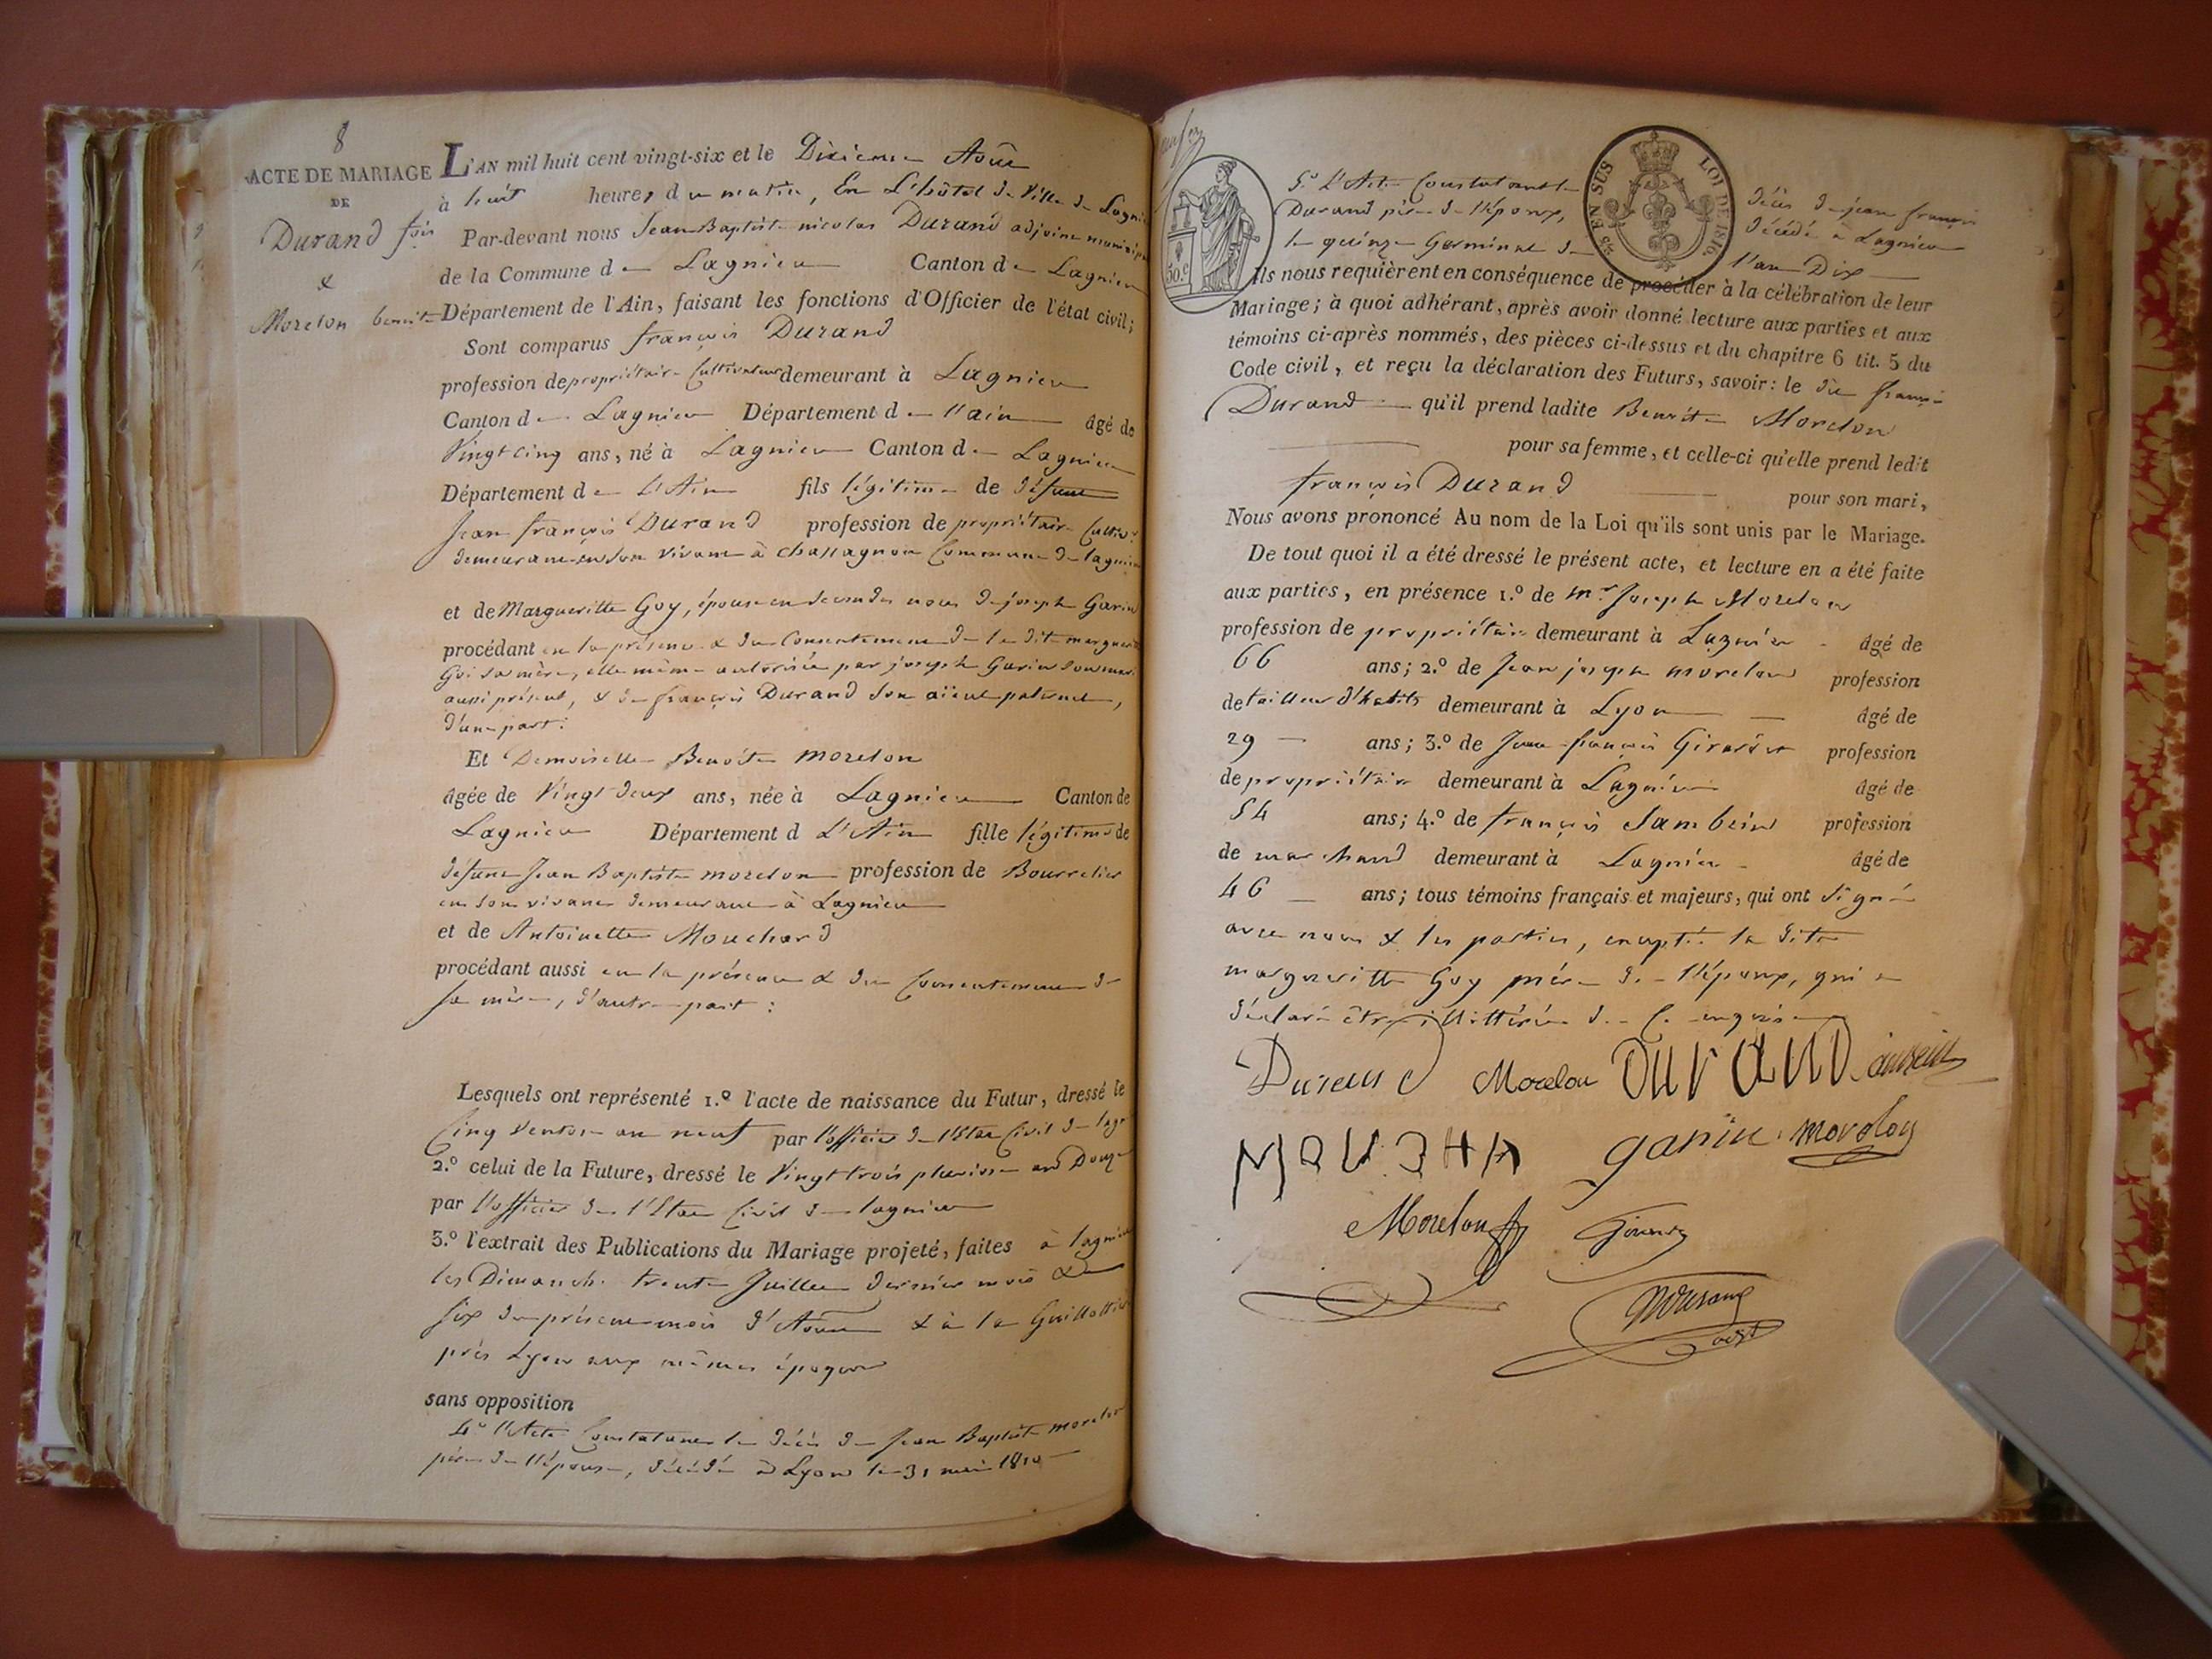 8
ACTE DE MARIAGE
DE
Durand fois
&
Morelon benoite
L'AN mil huit cent vingt-six et le Dixieme Août
à huit heures du matin, En L'hôtel de Ville de Lagnieu
Par-devant nous Jean Baptiste nicolas Durand adjoint municipal
de la Commune de Lagnieu Canton de Lagnieu
Département de l'Ain, faisant les fonctions d'Officier de l'état civil;
Sont comparus françois Durand
profession de propriétaire Cultivateur demeurant à Lagnieu
Canton de Lagnieu Département de l'ain âgé de
Vingt cinq ans, né à Lagnieu Canton de Lagnieu
Département de L'Ain fils légitime de défunt
Jean françois Durand profession de propriétaire Cultivr
demeurant en son vivant à Chassagnon Commune de lagnieu
et de Margueritte Goy, épouse en secondes noces de joseph Garin
procédant en la présence & du Consentement de la dite marguerite
Goi sa mère, elle même autorisée par joseph Garin son mari
aussi présent, & de françois Durand son aïeul paternel,
d'une part:
Et Demoiselle Benoite morelon
âgée de Vingt deux ans, née à Lagnieu Canton de
Lagnieu Département d L'Ain fille légitime de
défunt Jean Baptiste morelon profession de Bourrelier
en son vivant demeurant à Lagnieu
et de Antoinette Mouchard
procédant aussi en la présence & du Consentement de
sa mère, d'autre part:
Lesquels ont représenté 1.º l'acte de naissance du Futur, dressé le
Cinq Ventose an neuf par l'officier de l'Etat Civil de lagn
2.º celui de la Future, dressé le Vingt trois pluviose an Douze
par l'officier de l'Etat Civil de lagnieu
3.º l'extrait des Publications du Mariage projeté, faites à lagnieu
les Dimanche trente Juillet dernier mois &
six du présent mois d'Août & à la Guillottière
près Lyon aux mêmes époques
sans opposition
4º l'Acte Constatant le décès de Jean Baptiste morelon
père de l'épouse, décédé à Lyon le 31 mai 1810
50.c
25 EN SUS
LOI DE 1816
5º L'Acte Constatant le décès de jean françois
Durand père de l'époux, décédé à Lagnieu
le quinze Germinal de l'an Dix
Ils nous requièrent en conséquence de procéder à la célébration de leur
Mariage; à quoi adhérant, après avoir donné lecture aux parties et aux
témoins ci-après nommés, des pièces ci-dessus et du chapitre 6 tit. 5 du
Code civil, et reçu la déclaration des Futurs, savoir: le dit françois
Durand qu'il prend ladite Benoite Morelon
pour sa femme, et celle-ci qu'elle prend ledit
françois Durand pour son mari,
Nous avons prononcé Au nom de la Loi qu'ils sont unis par le Mariage.
De tout quoi il a été dressé le présent acte, et lecture en a été faite
aux parties, en présence 1.º de mr Joseph Morelon
profession de propriétaire demeurant à Lagnieu âgé de
66 ans; 2.º de Jean joseph morelon profession
de tailleur d'habits demeurant à Lyon âgé de
29 ans; 3.º de Jean françois Girardet profession
de propriétaire demeurant à Lagnieu âgé de
54 ans; 4.º de françois Jambein profession
de marchand demeurant à Lagnieu âgé de
46 ans; tous témoins français et majeurs, qui ont signé
avec nous & les parties, excepté la dite
margueritte Goy mère de l'époux, qui a
déclaré être illittérée de ce enquise
Durand Morelon DurAND
MOUCHA garin morelon
Morelon
Durand
adjt